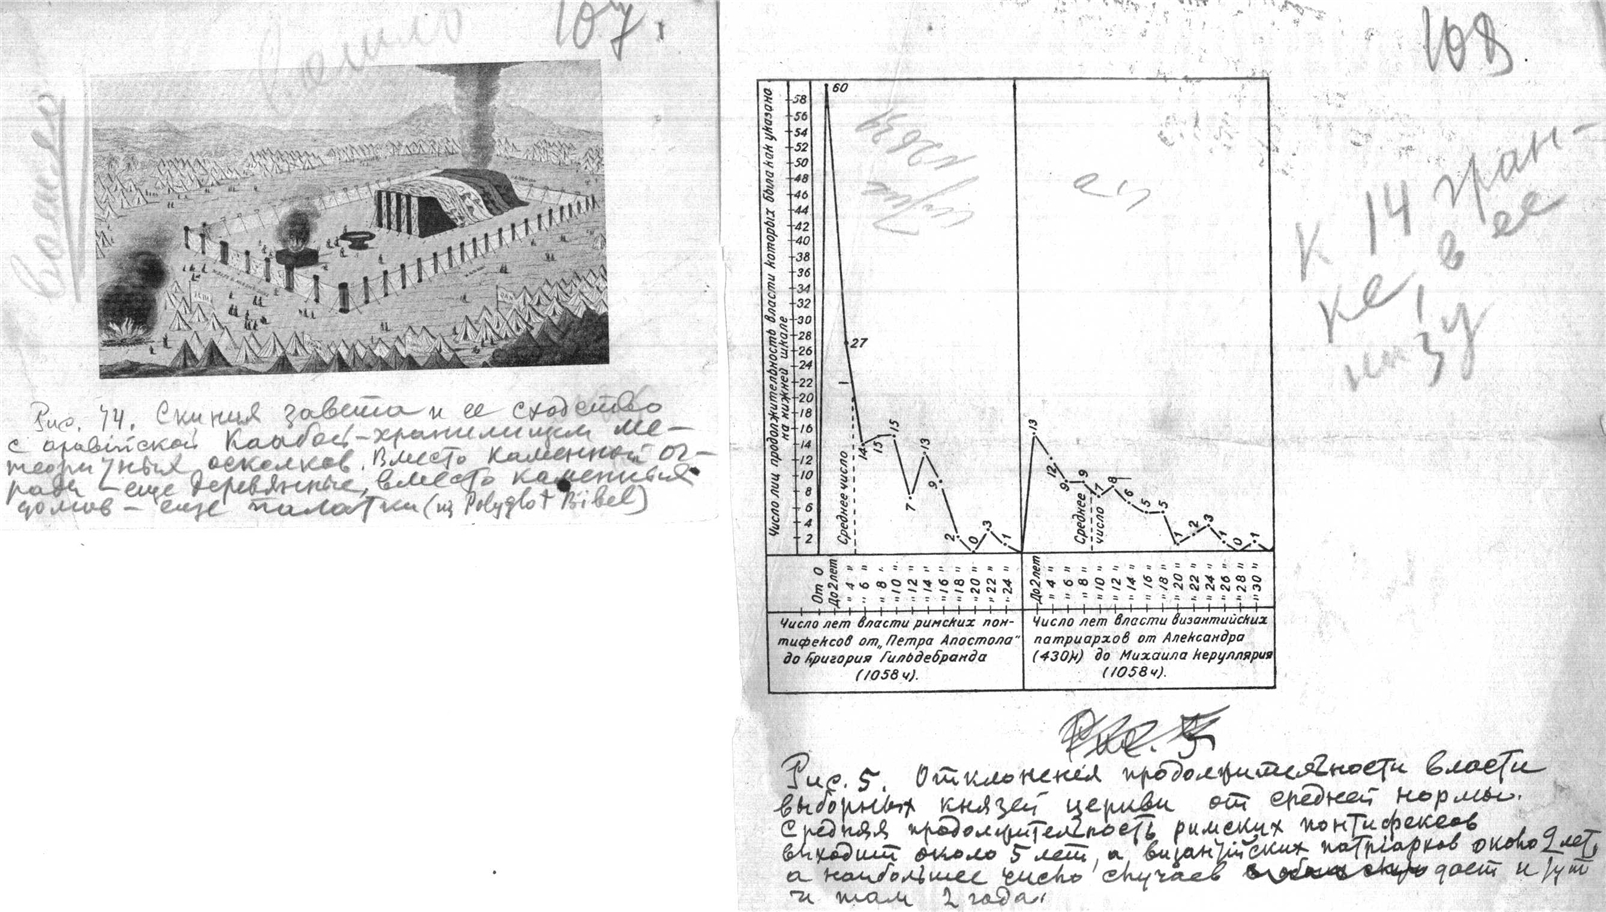 107.
вошло
вошло
Рис. 74. Скиния завета и ее сходство
с аравийской Каабой-хранилищем ме-
теоричных осколков. Вместо каменной ог-
рады – еще деревянные, вместо каменных
домов – еще палатки (из Polyglot Bibel)
108.
К 14 гран-
ке, в ее
низу
Число лиц продолжительность власти которых была как указано
на нижней шкале
58
56
54
52
50
48
46
44
42
40
38
36
34
32
30
28
26
24
22
20
18
16
14
12
10
8
6
4
2
60
27
14
15
15
7
13
9
2
0
3
1
Среднее число
13
12
9
9
7
8
6
5
5
1
2
3
1
0
1
Среднее
число
От 0
До 2 лет
" 4 "
" 6 "
" 8 "
" 10 "
" 12 "
" 14 "
" 16 "
" 18 "
" 20 "
" 22 "
" 24 "
До 2 лет
" 4 "
" 6 "
" 8 "
" 10 "
" 12 "
" 14 "
" 16 "
" 18 "
" 20 "
" 22 "
" 24 "
" 26 "
" 28 "
" 30 "
Число лет власти римских пон-
тифексов от „Петра Апостола"
до Григория Гильдебранда
(1058 г).
Число лет власти византийских
патриархов от Александра
(430 г) до Михаила Керуллярия
(1058 г).
Рис. 5
Рис. 5. Отклонения продолжительности власти
выборных князей церкви от средней нормы.
Средняя продолжительность римских понтифексов
выходит около 5 лет, а византийских патриархов около 9 лет,
а наибольшее число случаев дает и тут
и там 2 года.